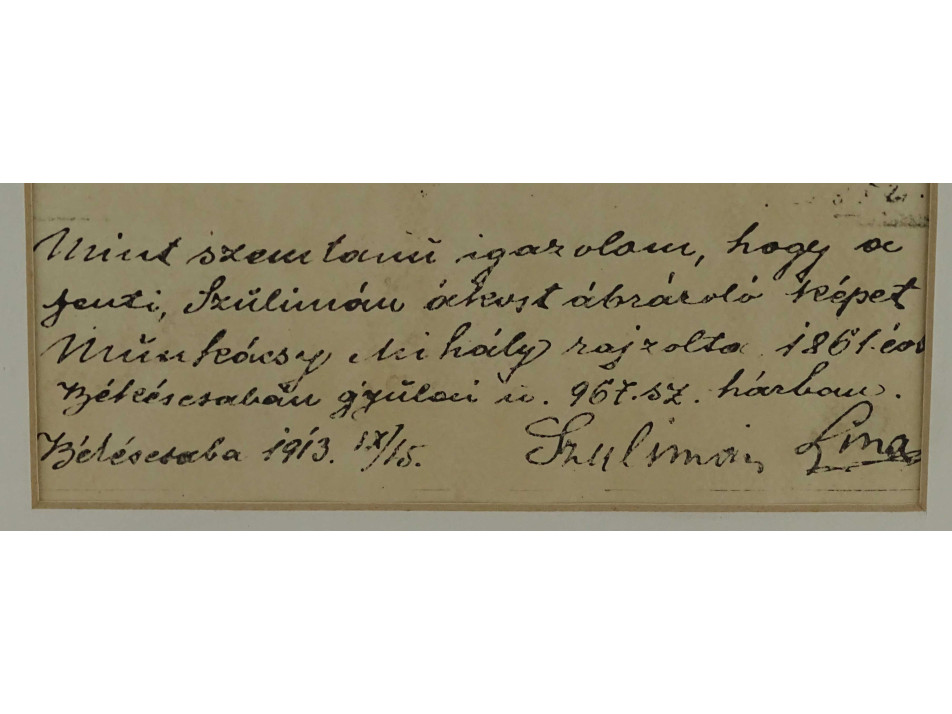 Mint szemtanu igazolom, hogy a
fenti, Szulimán ákost ábrázoló képet
Munkácsy Mihály rajzolta 1861. év
Békéscsabán gyulai u. 967. sz. házban.
Békéscsaba 1913. IX/15. Szulimán Lina